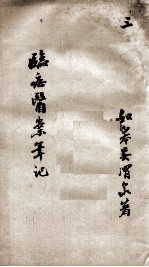 三
如皋吴渭泉著
臨症醫案筆记